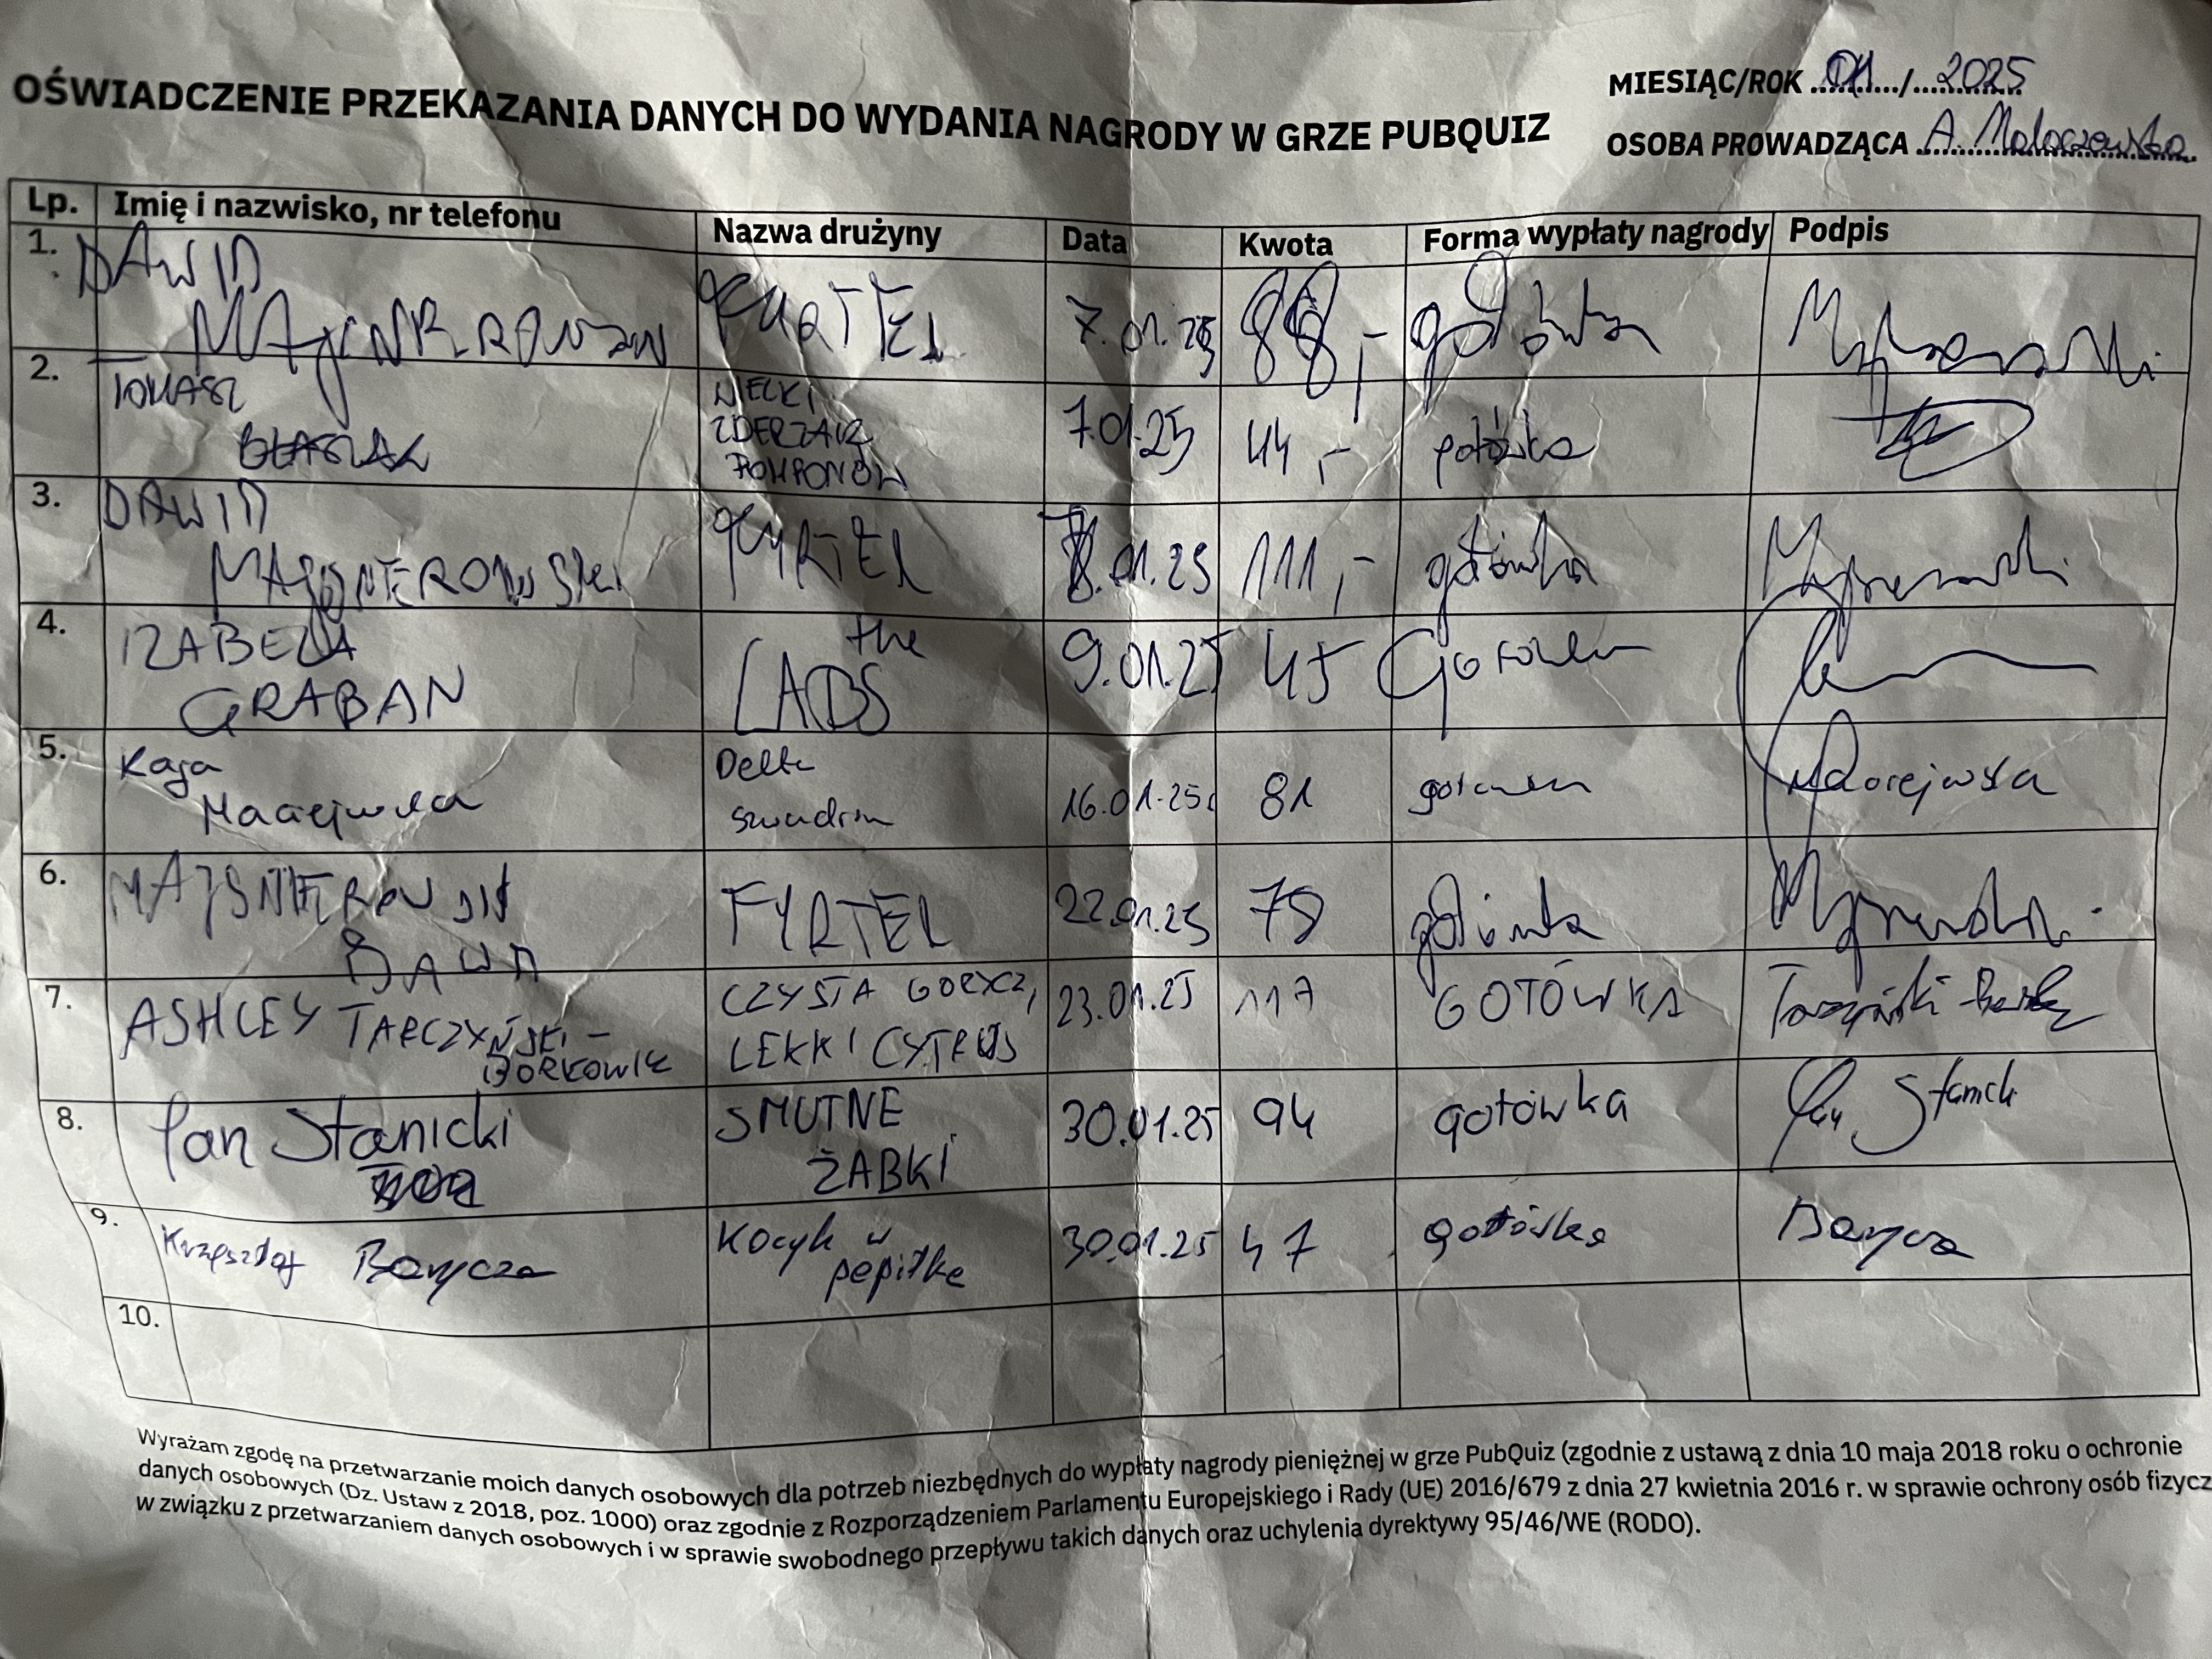 OŚWIADCZENIE PRZEKAZANIA DANYCH DO WYDANIA NAGRODY W GRZE PUBQUIZ
MIESIĄC/ROK 01/2025
OSOBA PROWADZĄCA A.
Lp. Imię i nazwisko, nr telefonu Nazwa drużyny Data Kwota Forma wypłaty nagrody Podpis
1. DAWID 7.01.25 88,- gotówka
2. TOMASZ BŁASIAK WIELKI ZDERZACZ POMPONÓW 7.01.25 44,- gotówka
3. DAWID MAJSNEROWSKI FYRTEL 8.01.25 111,- gotówka
4. IZABELA GRABAN the LADS 9.01.25 45 Gotówka
5. Kaja Maciejewska Delta 16.01.25 81 gotówka
6. MAJSNEROWSKI DAWID FYRTEL 22.01.25 gotówka
7. ASHLEY TARCZYŃSKI-BORKOWIK CZYSTA GORYCZ, LEKKI CYTRUS 23.01.25 117 GOTÓWKA
8. Jan Stanicki SMUTNE ŻABKI 30.01.25 94 gotówka Jan Stanicki
9. Krzysztof Barycza Kocyk w pepitkę 30.01.25 47 gotówka Barycza
10.
Wyrażam zgodę na przetwarzanie moich danych osobowych dla potrzeb niezbędnych do wypłaty nagrody pieniężnej w grze PubQuiz (zgodnie z ustawą z dnia 10 maja 2018 roku o ochronie
danych osobowych (Dz. Ustaw z 2018, poz. 1000) oraz zgodnie z Rozporządzeniem Parlamentu Europejskiego i Rady (UE) 2016/679 z dnia 27 kwietnia 2016 r. w sprawie ochrony osób fizycz
w związku z przetwarzaniem danych osobowych i w sprawie swobodnego przepływu takich danych oraz uchylenia dyrektywy 95/46/WE (RODO).